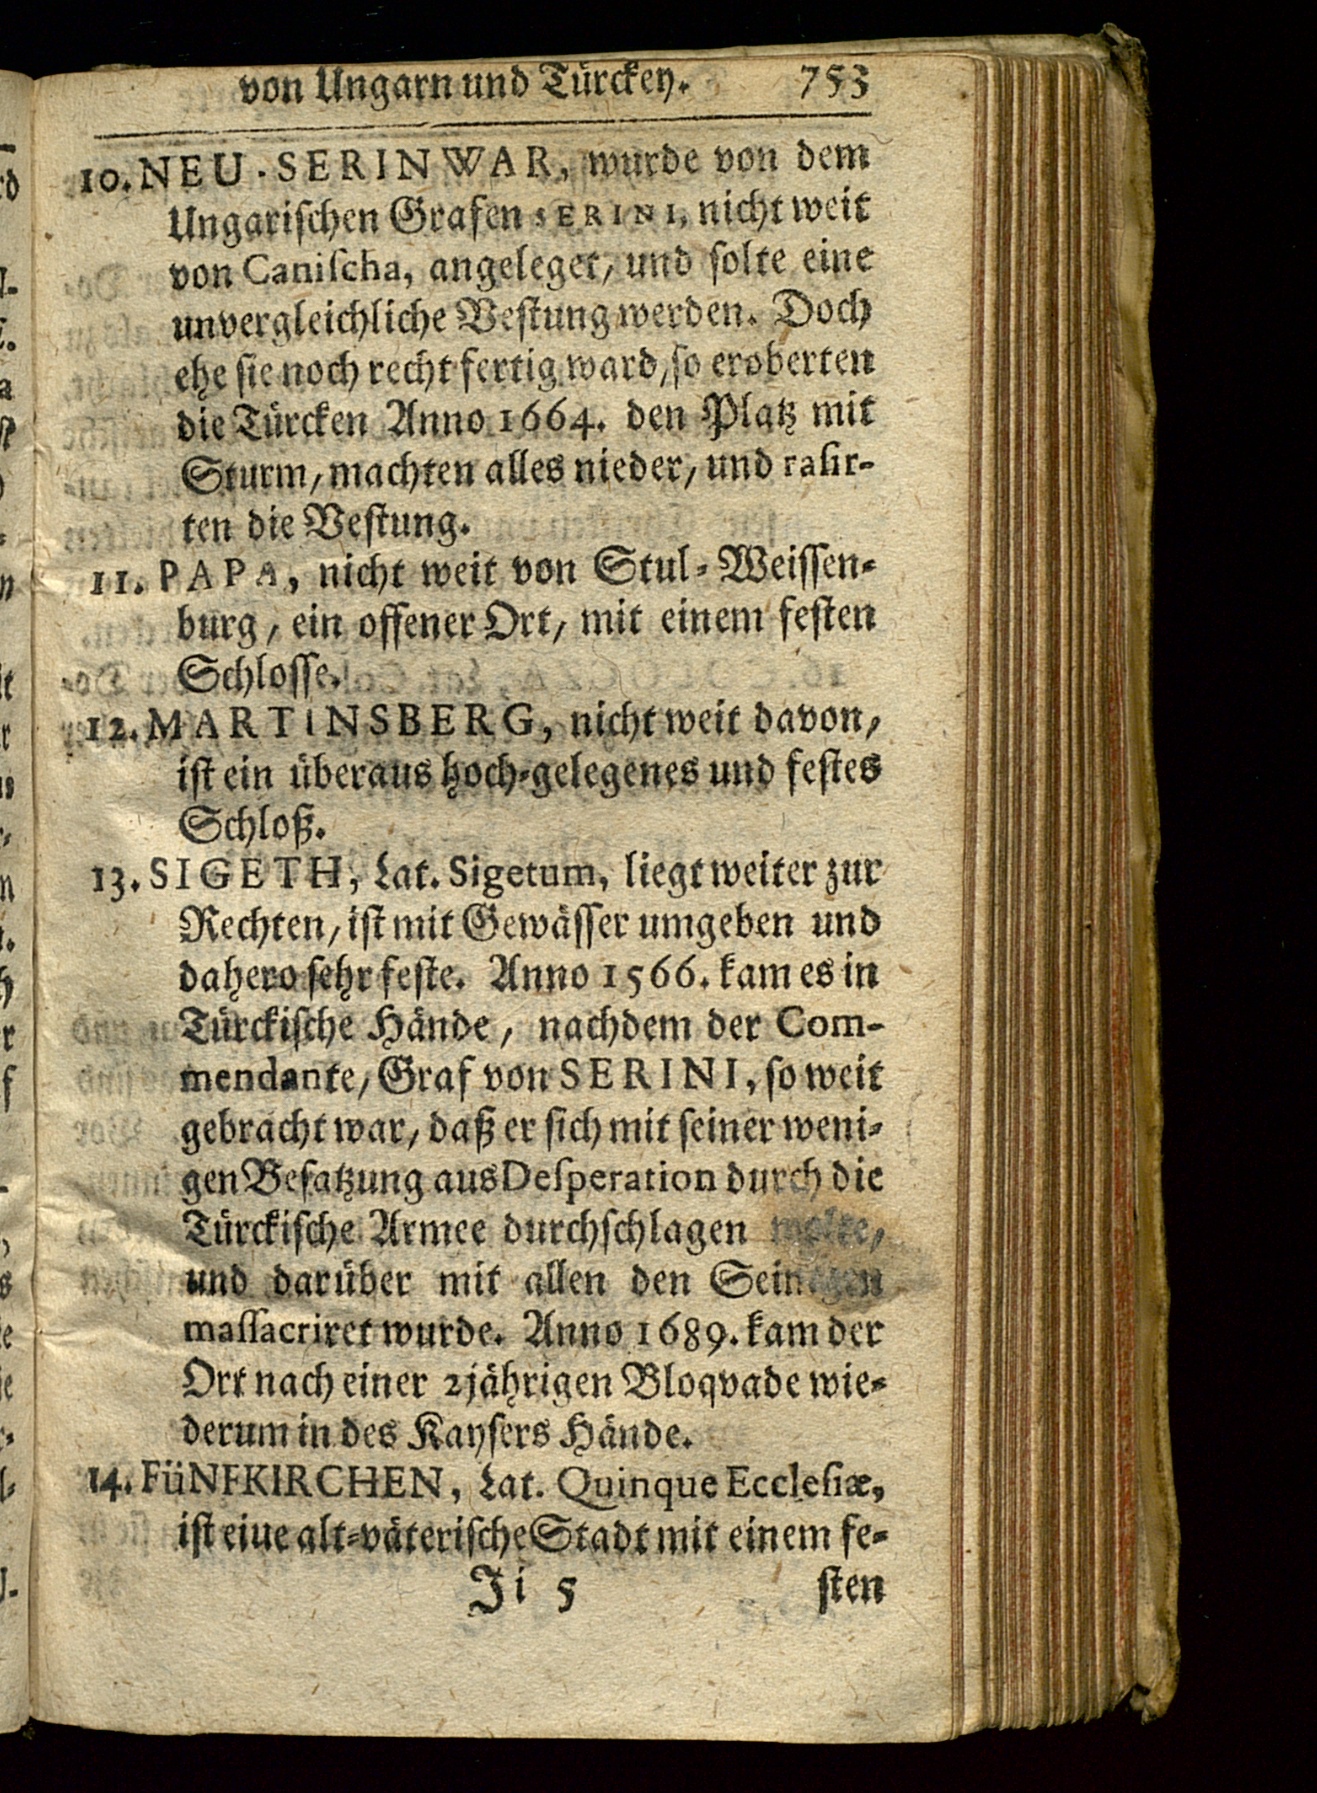 von Ungarn und Türckey. 753
10. NEU-SERINWAR, wurde von dem
Ungarischen Grafen SERINI, nicht weit
von Canischa, angeleget, und solte eine
unvergleichliche Vestung werden. Doch
ehe sie noch recht fertig ward, so eroberten
die Türcken Anno 1664. den Platz mit
Sturm, machten alles nieder, und rasir-
ten die Vestung.
11. PAPA, nicht weit von Stul-Weissen-
burg, ein offener Ort, mit einem festen
Schlosse.
12. MARTINSBERG, nicht weit davon,
ist ein überaus hoch-gelegenes und festes
Schloß.
13. SIGETH, Lat. Sigetum, liegt weiter zur
Rechten, ist mit Gewässer umgeben und
dahero sehr feste. Anno 1566. kam es in
Türckische Hände, nachdem der Com-
mendante, Graf von SERINI, so weit
gebracht war, daß er sich mit seiner weni-
gen Besatzung aus Desperation durch die
Türckische Armee durchschlagen wolte,
und darüber mit allen den Seinigen
massacriret wurde. Anno 1689. kam der
Ort nach einer 2jährigen Bloqvade wie-
derum in des Kaysers Hände.
14. FüNFKIRCHEN, Lat. Quinque Ecclesiæ,
ist eiue alt-väterische Stadt mit einem fe-
Ii 5 sten